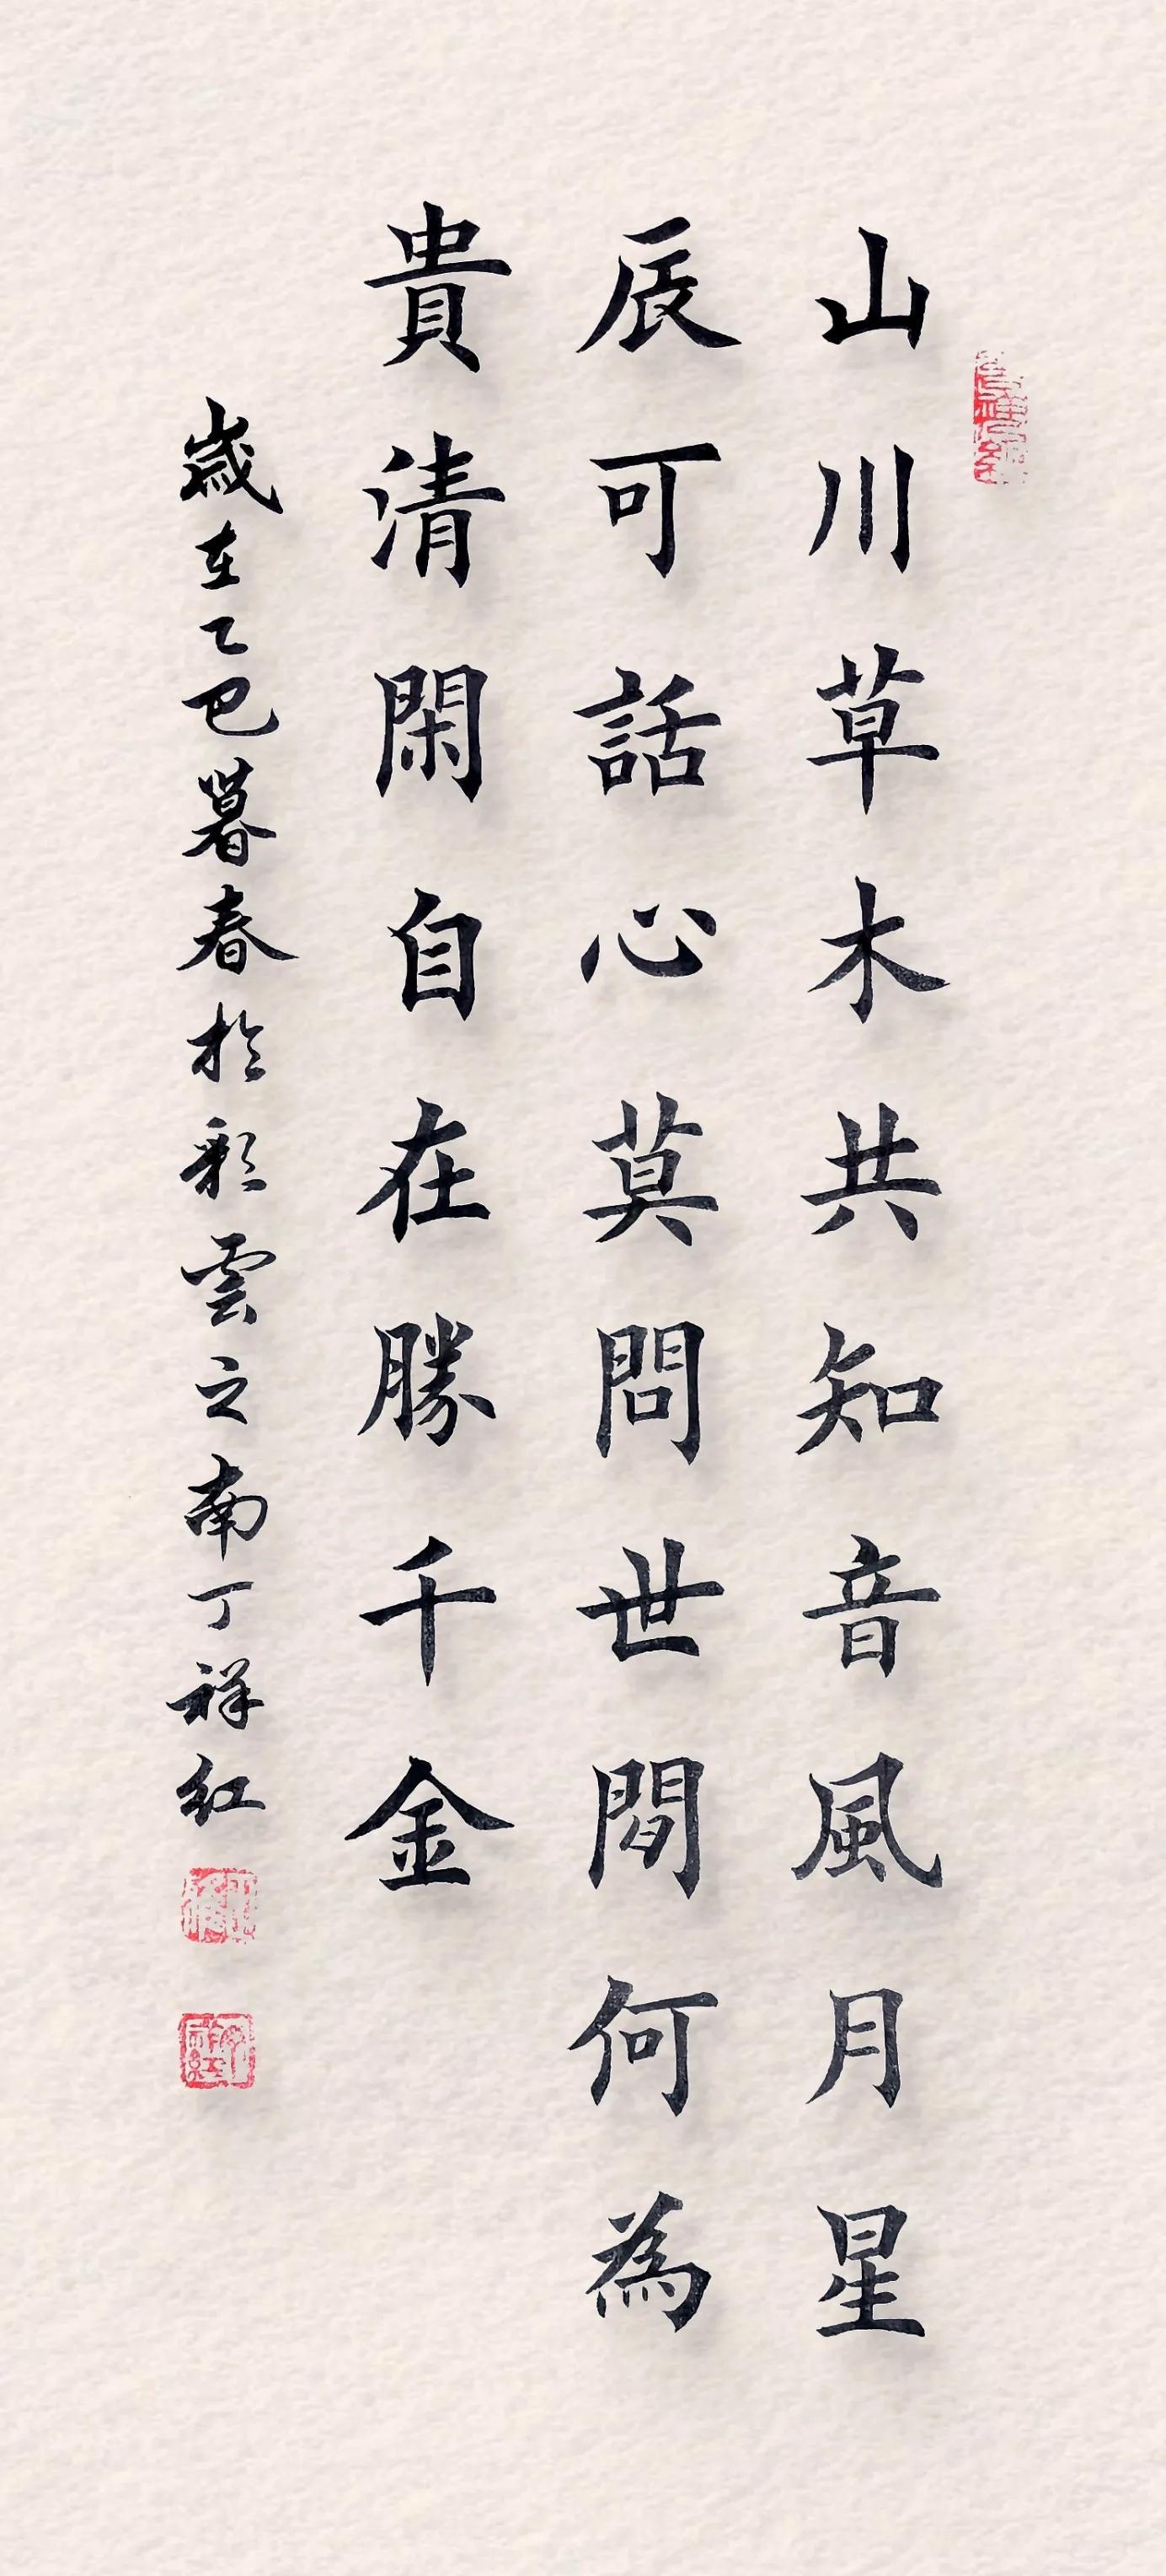 山川草木共知音風月星
辰可話心莫問世間何為
貴清閑自在勝千金
歲在乙巳暮春於彩雲之南丁祥红